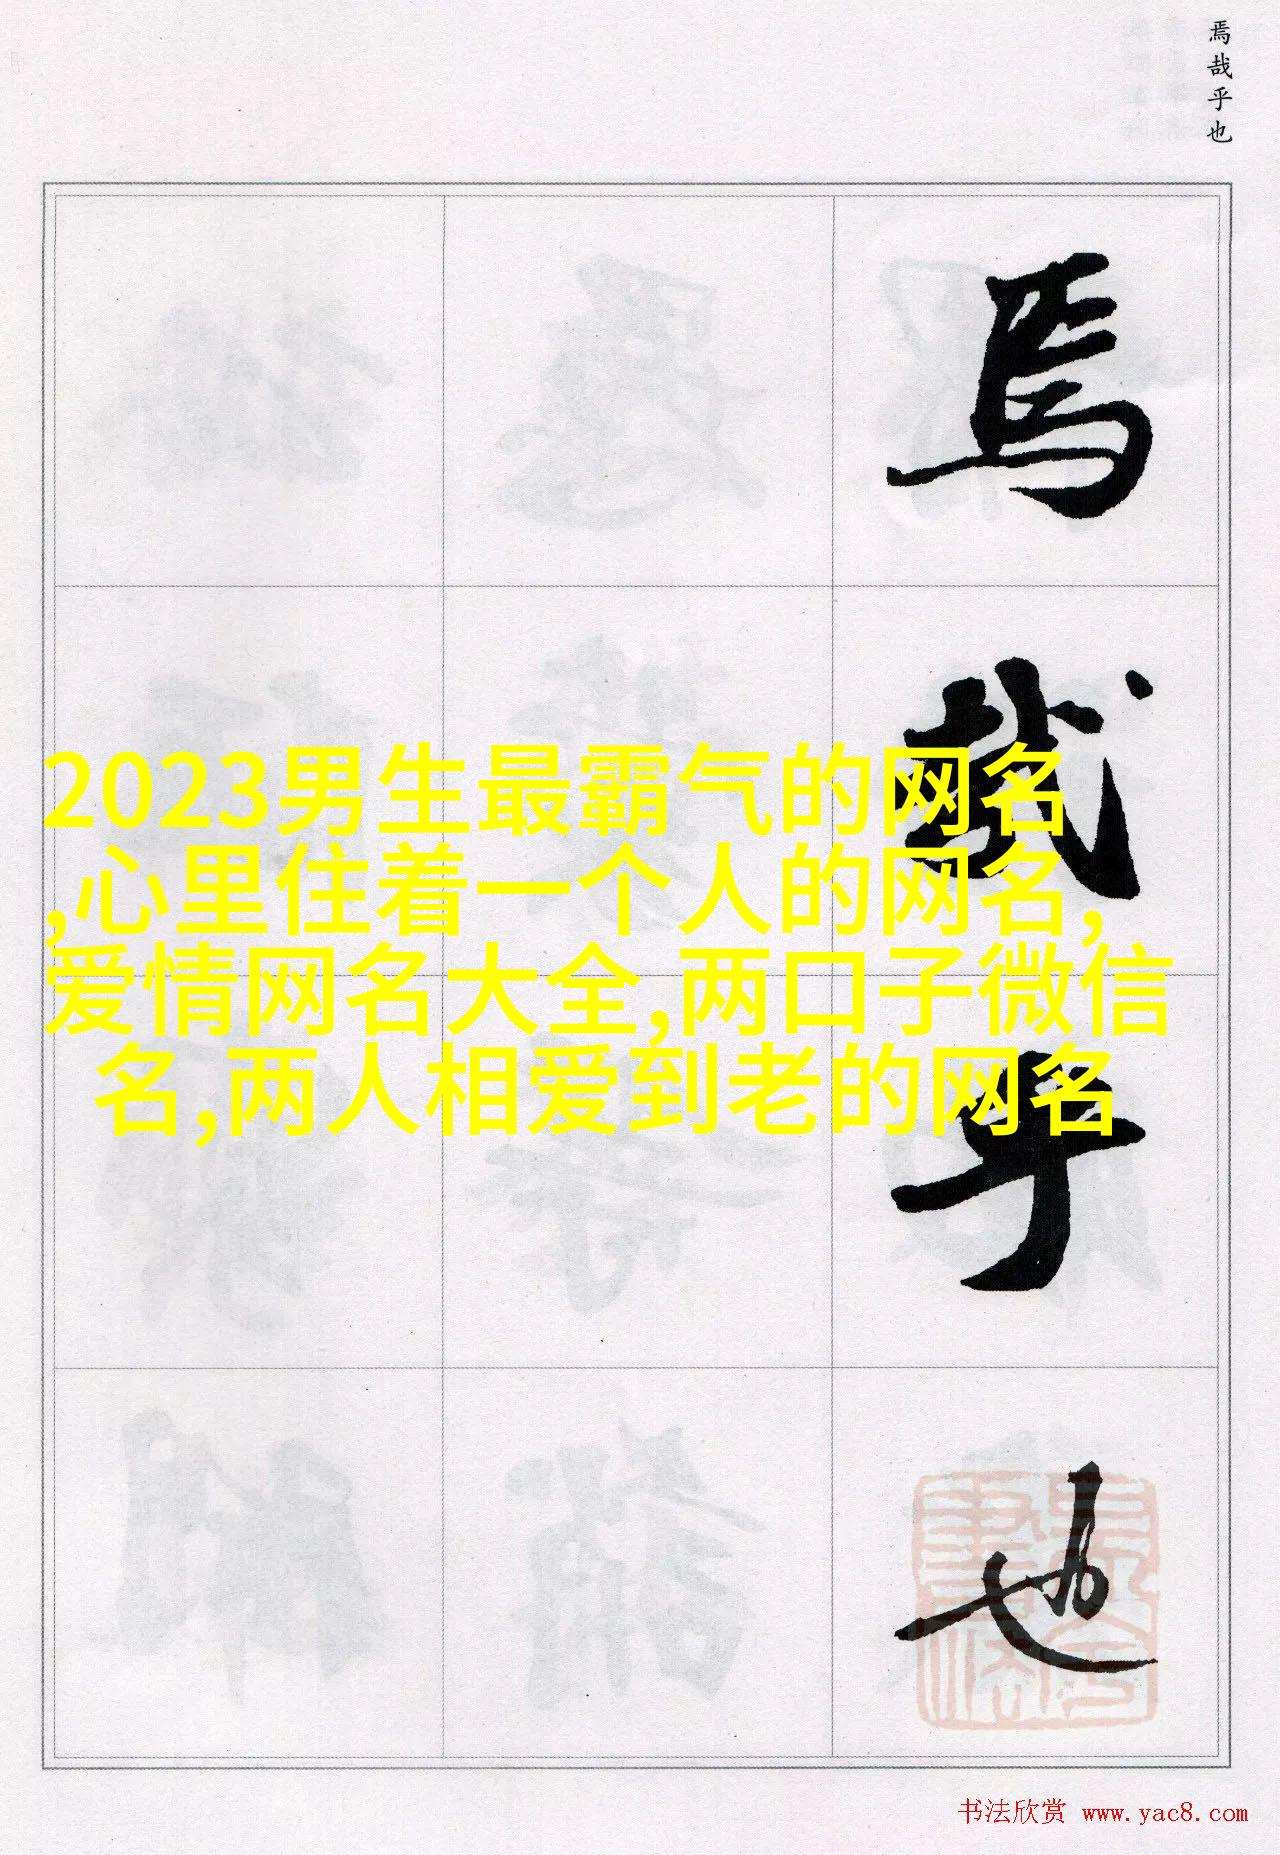 焉哉乎也
焉
哉
乎
也
2023男生最霸气的网名
,心里住着一个人的网名,
爱情网名大全,两口子微信
名,两人相爱到老的网名
书法欣赏 www.yac8.com